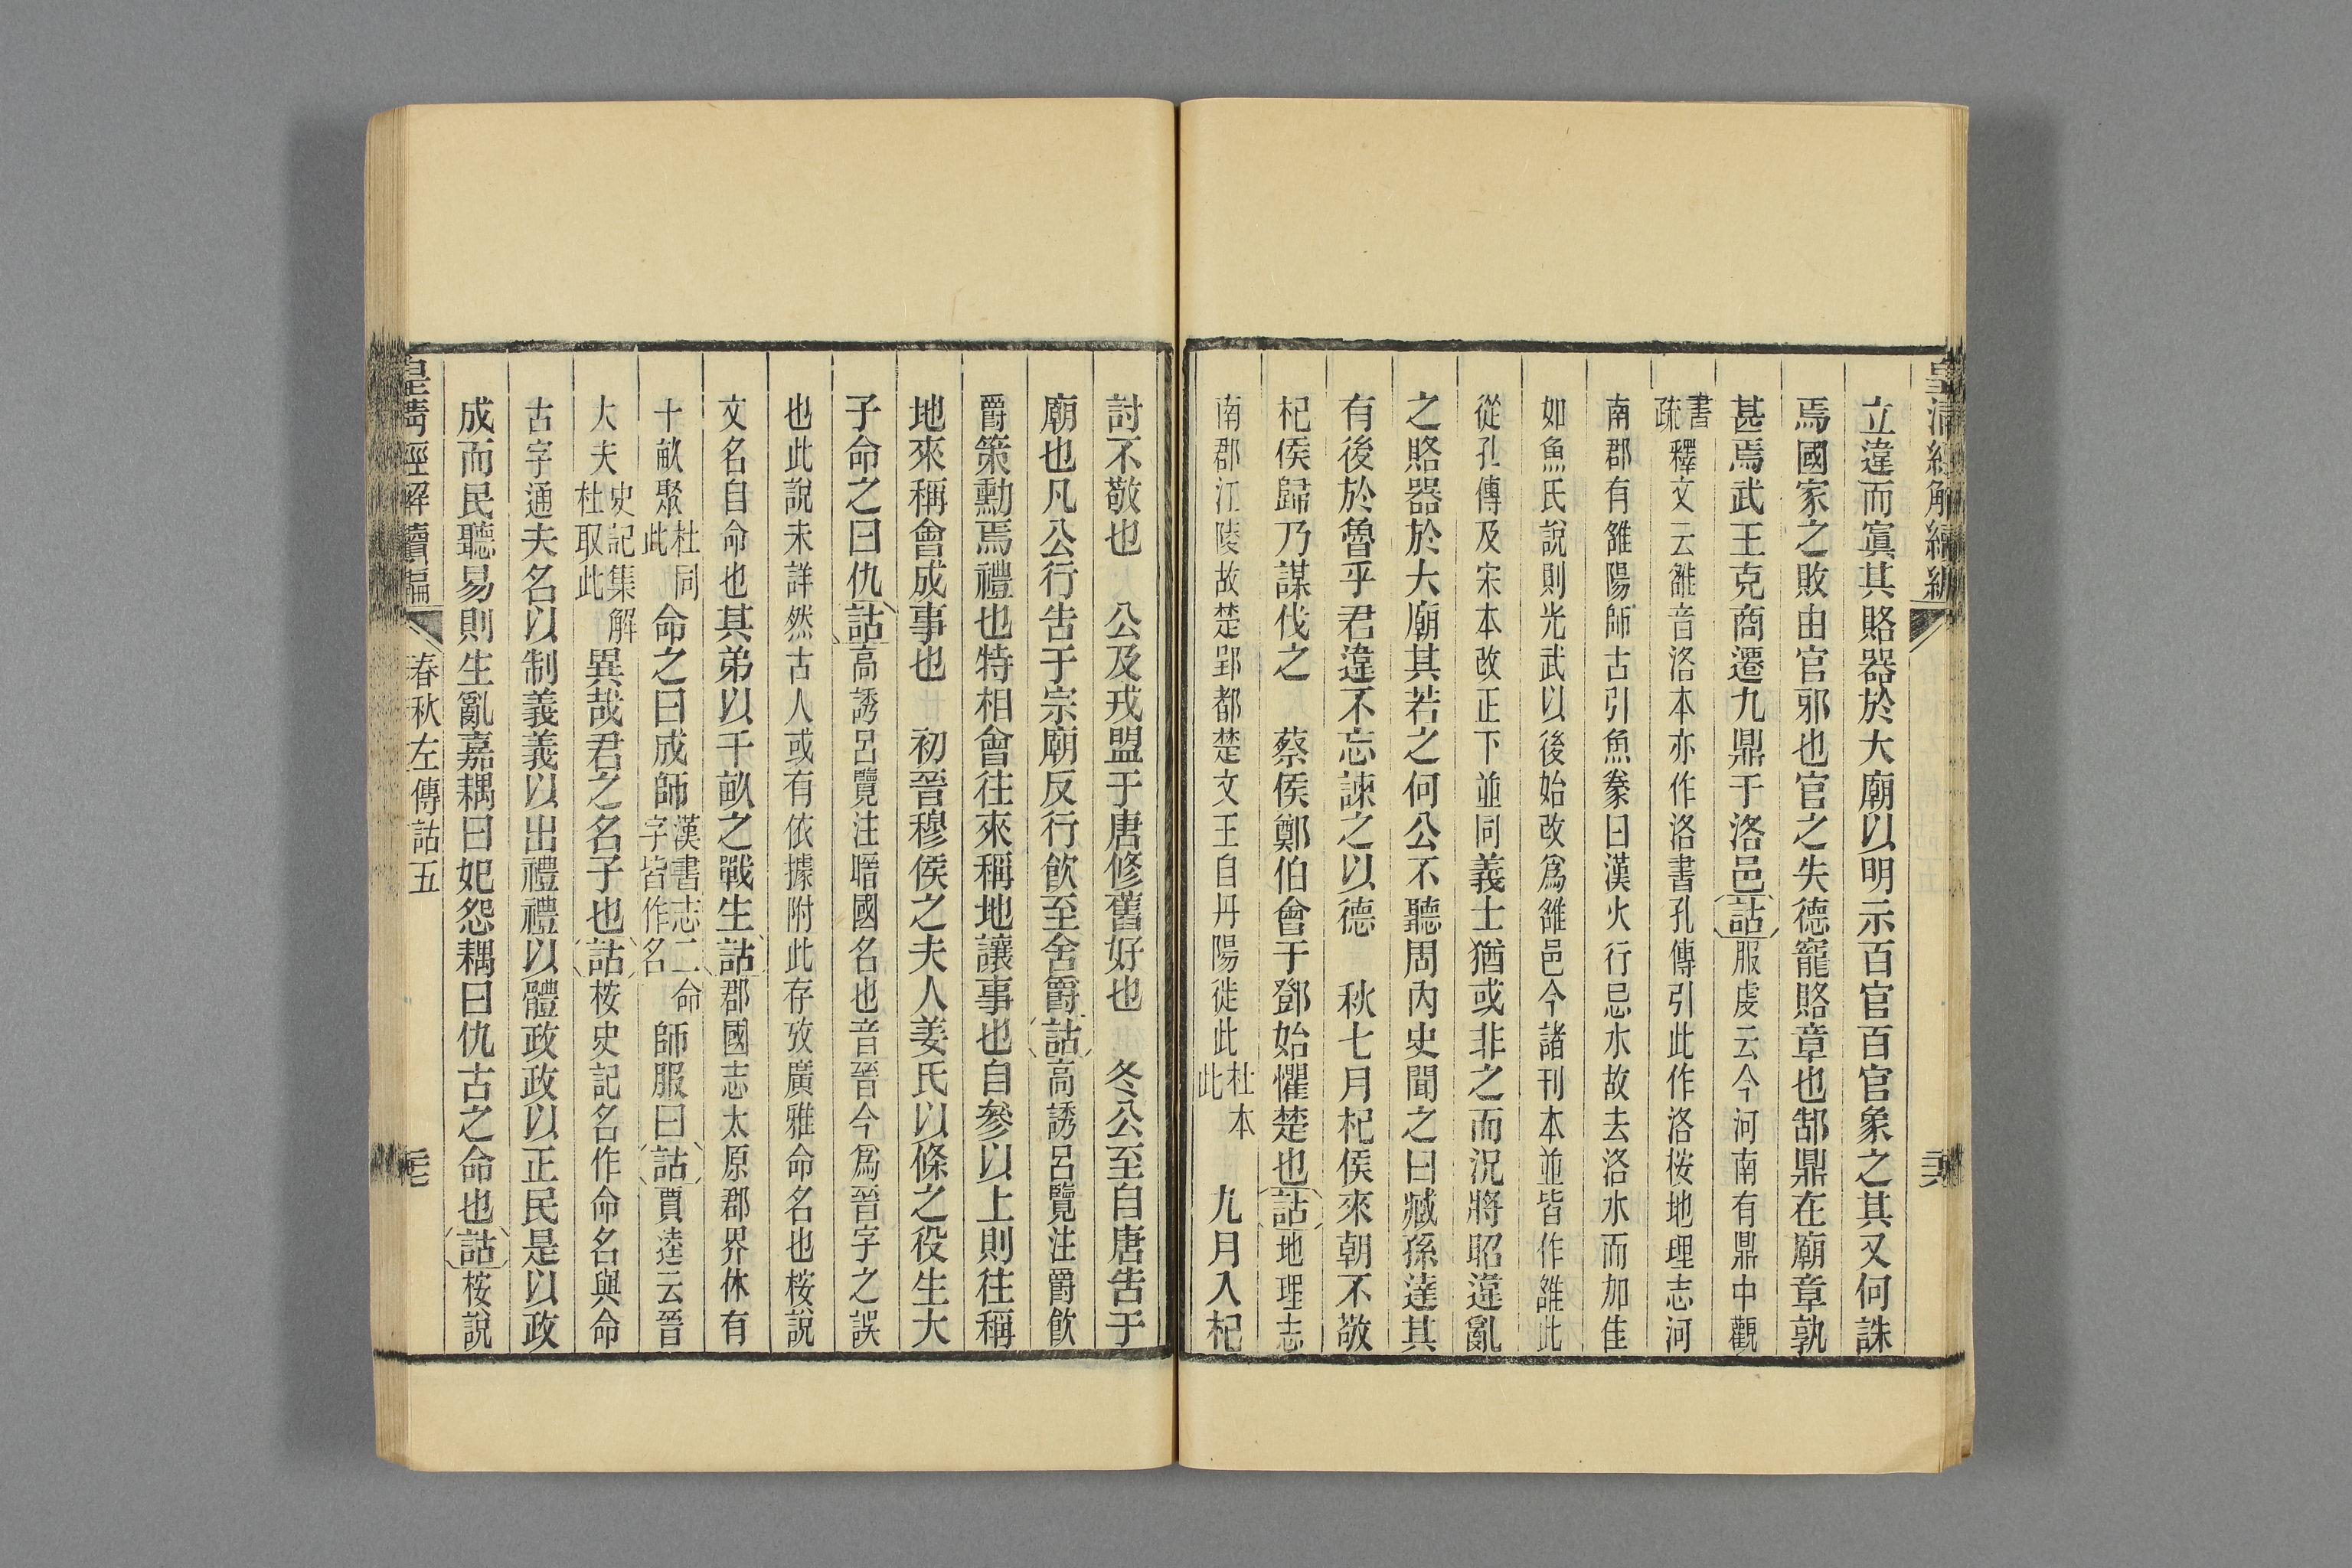 皇清經解續編
立違而寘其賂器於大廟以明示百官百官象之其又何誅
焉國家之敗由官邪也官之失德寵賂章也郜鼎在廟章孰
甚焉武王克商遷九鼎于洛邑詁服虔云今河南有鼎中觀
書疏釋文云雒音洛本亦作洛書孔傳引此作洛桉地理志河
南郡有雒陽師古引魚豢曰漢火行忌水故去洛水而加隹
如魚氏說則光武以後始改爲雒邑今諸刊本並皆作雒此
從孔傳及宋本改正下並同義士猶或非之而況將昭違亂
之賂器於大廟其若之何公不聽周內史聞之曰臧孫達其
有後於魯乎君違不忘諫之以德　秋七月杞侯來朝不敬
杞侯歸乃謀伐之　蔡侯鄭伯會于鄧始懼楚也詁地理志
南郡江陵故楚郢都楚文王自丹陽徙此杜本此　九月入杞
討不敬也　公及戎盟于唐修舊好也　冬公至自唐告于
廟也凡公行告于宗廟反行飮至舍爵詁高誘呂覽注爵飮
爵策勳焉禮也特相會往來稱地讓事也自參以上則往稱
地來稱會成事也　初晉穆侯之夫人姜氏以條之役生大
子命之曰仇詁高誘呂覽注㬜國名也音晉今爲晉字之誤
也此說未詳然古人或有依據附此存攷廣雅命名也桉說
文名自命也其弟以千畝之戰生詁郡國志太原郡界休有
千畝聚杜同此命之曰成師漢書志二命字皆作名師服曰詁賈逵云晉
大夫史記集解杜取此異哉君之名子也詁桉史記名作命名與命
古字通夫名以制義義以出禮禮以體政政以正民是以政
成而民聽易則生亂嘉耦曰妃怨耦曰仇古之命也詁桉說
皇清經解續編　春秋左傳詁五